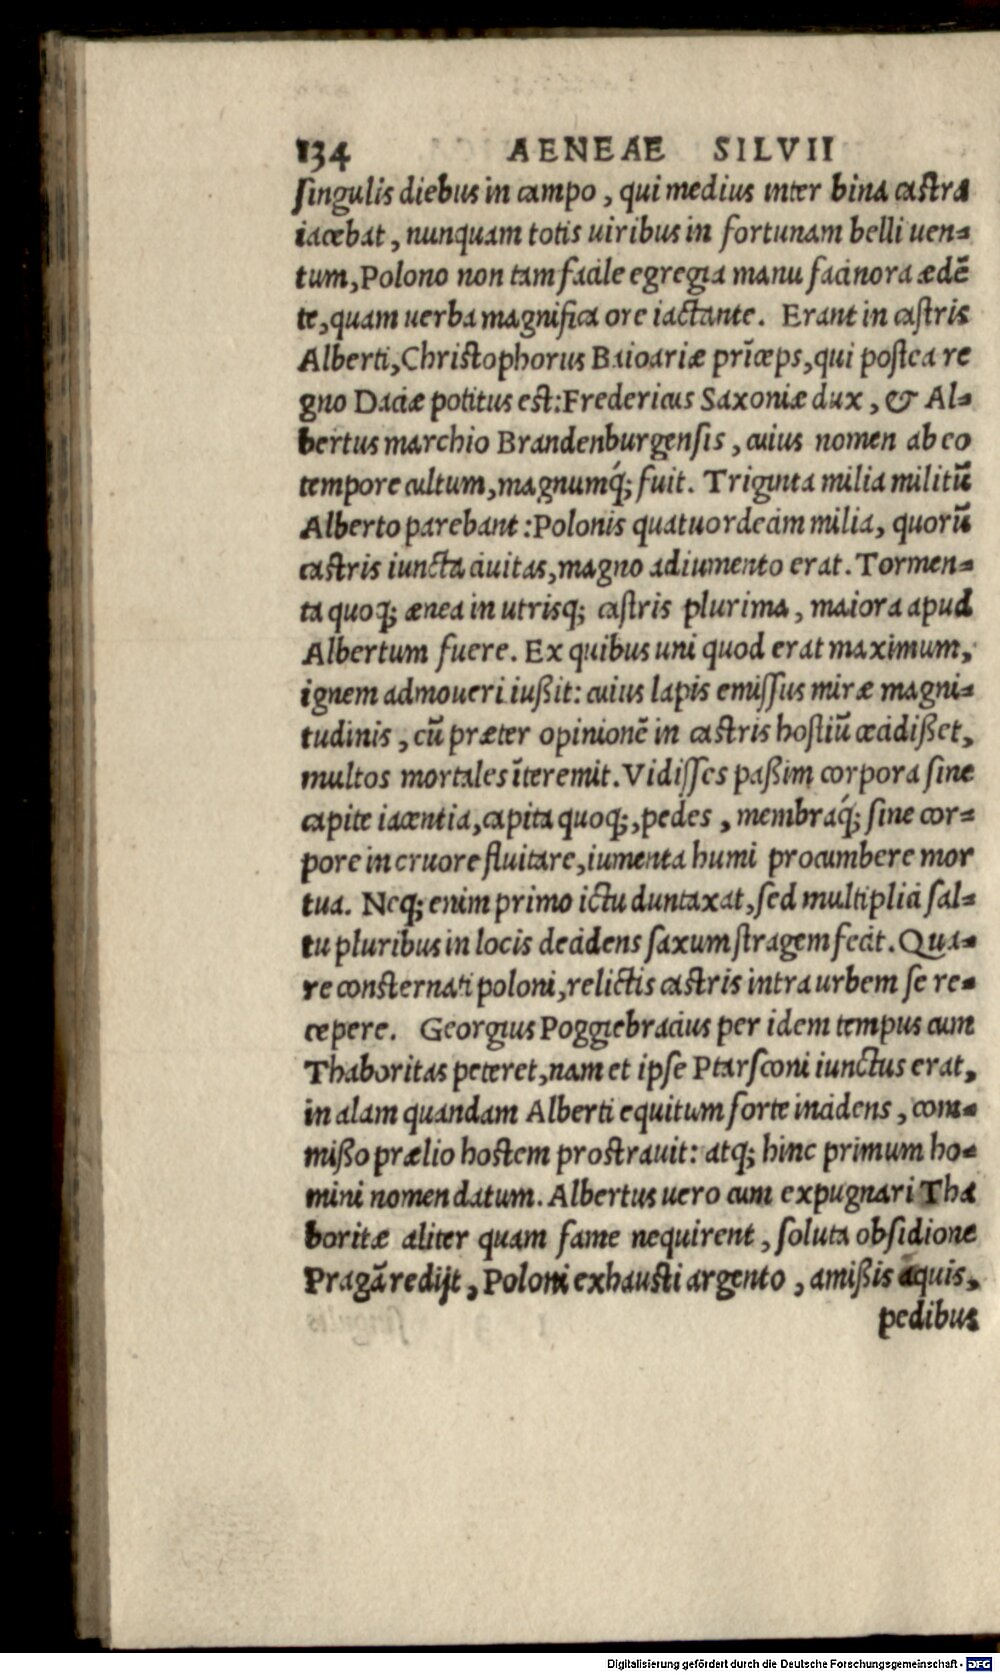 134 AENEAE SILVII
singulis diebus in campo, qui medius inter bina castra
iacebat, nunquam totis uiribus in fortunam belli uen-
tum, Polono non tam facile egregia manu facinora ædẽ
te, quam uerba magnifica ore iactante. Erant in castris
Alberti, Christophorus Baioariæ prĩceps, qui postea re
gno Daciæ potitus est: Fredericus Saxoniæ dux, & Al-
bertus marchio Brandenburgensis, cuius nomen ab eo
tempore cultum, magnumq́; fuit. Triginta milia militũ
Alberto parebant: Polonis quatuordecim milia, quorũ
castris iuncta ciuitas, magno adiumento erat. Tormen-
ta quoq; ænea in utrisq; castris plurima, maiora apud
Albertum fuere. Ex quibus uni quod erat maximum,
ignem admoueri iußit: cuius lapis emissus miræ magni-
tudinis, cũ præter opinionẽ in castris hostiũ cecidißet,
multos mortales ĩteremit. Vidisses paßim corpora sine
capite iacentia, capita quoq;, pedes, membraq́; sine cor-
pore in cruore fluitare, iumenta humi procumbere mor
tua. Neq; enim primo ictu duntaxat, sed multiplici sal-
tu pluribus in locis decidens saxum stragem fecit. Qua-
re consternati poloni, relictis castris intra urbem se re-
cepere. Georgius Poggiebracius per idem tempus cum
Thaboritas peteret, nam et ipse Ptarsconi iunctus erat,
in alam quandam Alberti equitum forte incidens, com-
mißo prælio hostem prostrauit: atq; hinc primum ho-
mini nomen datum. Albertus uero cum expugnari Tha
boritæ aliter quam fame nequirent, soluta obsidione
Pragã redijt, Poloni exhausti argento, amißis æquis,
pedibus
Digitalisierung gefördert durch die Deutsche Forschungsgemeinschaft - DFG